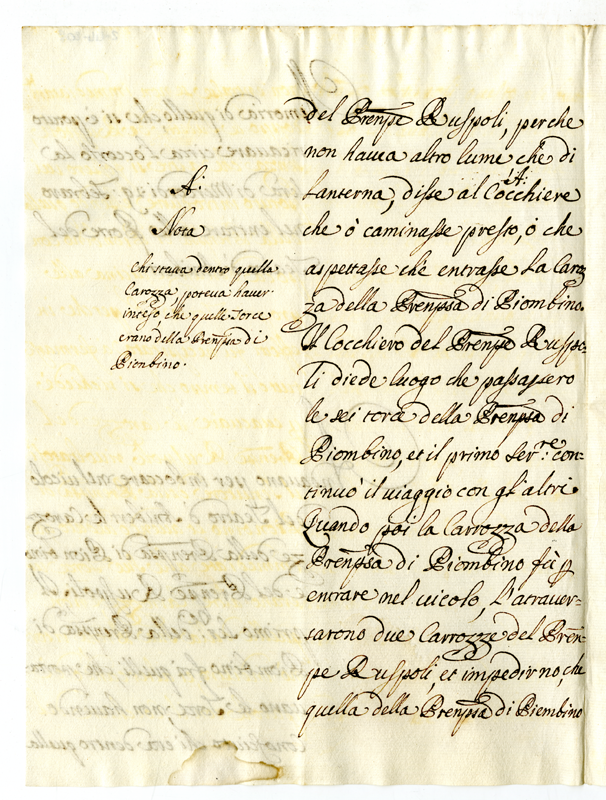 A:
Nota
chi stava dentro quella
Carozza, poteva haver
inteso, che quelle Torce
erano della Prenpsa di
Piombino.
del Prenpe Ruspoli, perche
non havea altro lume che di
Lanterna, disse al Cocchiere
A:
che ò caminasse presto, ò che
aspettasse che entrasse la Caroz
za della Prenpsa di Piombino.
Il Cocchiero del Prenpe Ruspo-
li diede luogo che passassero
le sei torce della Prenpsa di
Piombino, et il primo Ser.re con=
tinuò il viaggio con gl'altri
Quando poi la Carrozza della
Prenpsa di Piombino fù p
entrare nel vicolo, L'atraver-
sarono due Carrozze del Pren-
pe Ruspoli, et impedirno, che
quella della Prenpsa di Piombino